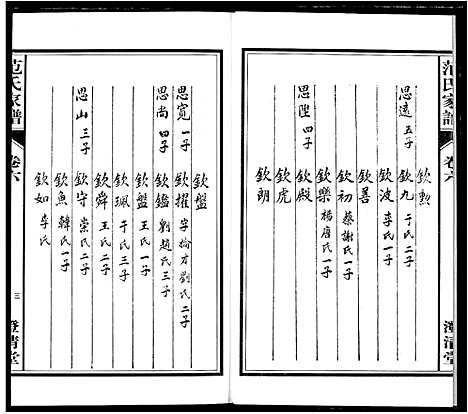 范氏家譜
卷六
澄清堂
欽勲
思遠 五子 欽九 于氏二子
欽波 李氏一子
欽善
欽初 蔡謝氏一子
欽樂 楊唐氏一子
思陞 四子 欽殿
欽虎
欽朗
欽盤
思寬 一子 欽擢 字掄才 劉氏二子
思尚 四子 欽鑑 劉趙氏三子
欽盤 王氏一子
欽珮 于氏三子
欽舜 王氏二子
思山 三子 欽守 崇氏二子
欽魚 韓氏一子
欽如 李氏
范氏家譜
卷六
三
澄清堂